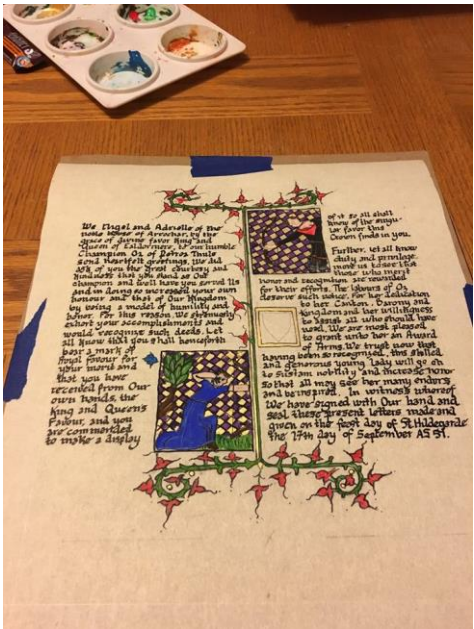 We Nigel and Adrielle of the
noble House of Arrochar, by the
grace of divine favor King and
Queen of Ealdormere, to our humble
Champion Oz of Petros Thule
send heartfelt greetings. We did
ask of you the great courtesy and
kindness that you stand as Our
champion and well have you served Us
and in doing so increased your own
honour and that of Our Kingdom
by being a model of humility and
honor. For this reason We strenuously
exhort your accomplishments and
would recognize such deeds. Let
all know that you shall henceforth
bear a mark of
Royal favour for
your merit and
that you have
received from Our
own hands, the
King and Queen's
Favour, and you
are commended
to make a display
of it so all shall
know of the singu-
lar favor this
Crown finds in you.
Further, let all know
duty and privilege
move us to see that
those who merit
honor and recognition are rewarded
for their efforts. The labours of Oz
deserve such notice. For her dedication
to her Canton, Barony and
Kingdom and her willingness
to assist all who should have
need, We are most pleased
to grant unto her an Award
of Arms. We trust now that
having been so recognised, this skilled
and generous young lady will go on
to sustain nobility and increase honor
so that all may see her many
and be inspired. In witness whereof
We have signed with Our hand and
seal these present letters made and
given on the feast day of St. Hildegarde
the 17th day of September AS 51.